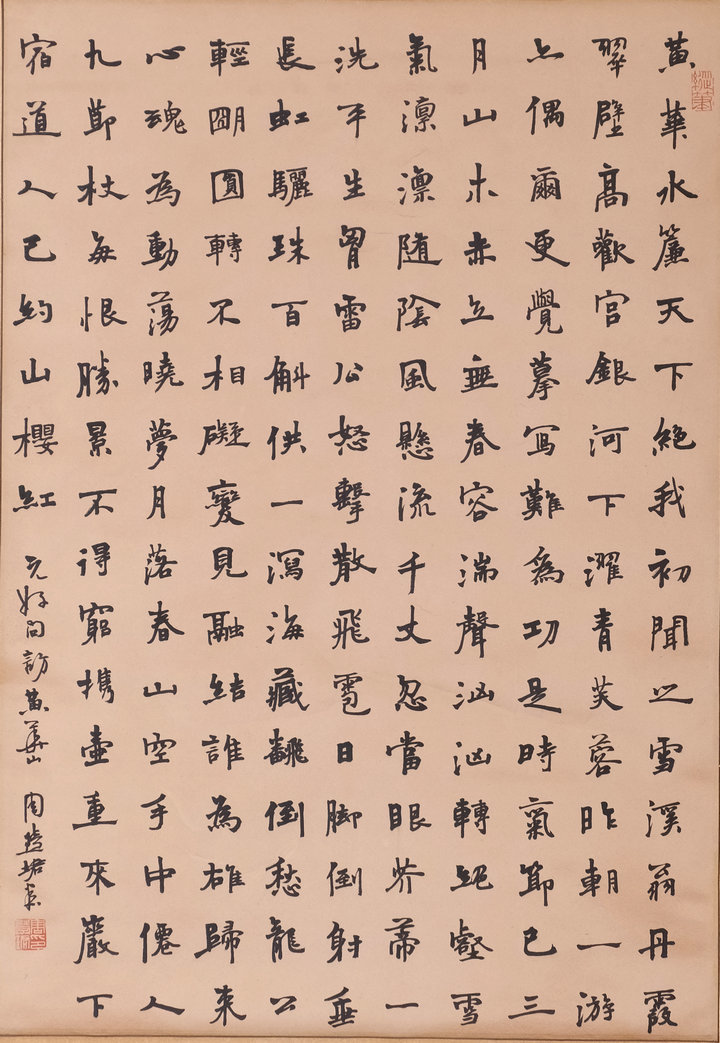 黃華水簾天下絕我初聞之雪溪翁丹霞
翠壁高歡宮銀河下濯青芙蓉昨朝一游
亦偶爾更覺摹寫難為功是時氣節已三
月山木赤立無春容湍聲洶洶轉絕壑雪
氣凜凜隨陰風懸流千丈忽當眼芥蒂一
洗平生胷雷公怒擊散飛雹日腳倒射垂
長虹驪珠百斛供一瀉海藏翻倒愁龍公
輕明圓轉不相礙變見融結誰為雄歸來
心魂為動蕩曉夢月落春山空手中僊人
九節杖每恨勝景不得窮攜壺重來巖下
宿道人已約山櫻紅 元好问訪黃華山 周